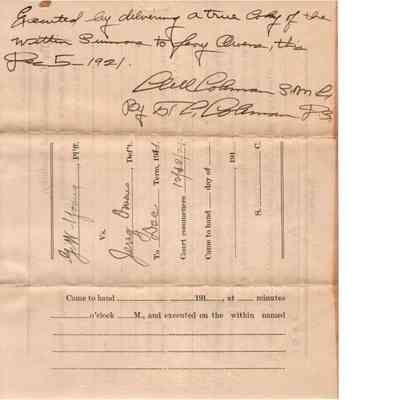 Executed by delivering a true Copy of the
within Summons to Jery Owens, this
Dec 5 - 1921.
Coleman
By Coleman
G W Young, Pl'ff.
Vs.
Jerry Owens, Def't.
To Dec Term, 191
Court commences 12/12/21
Came to hand day of
191
S. C.
Came to hand 191 , at minutes
o'clock M., and executed on the within named